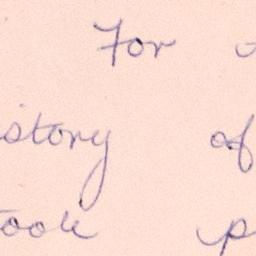 For
istory of
took p